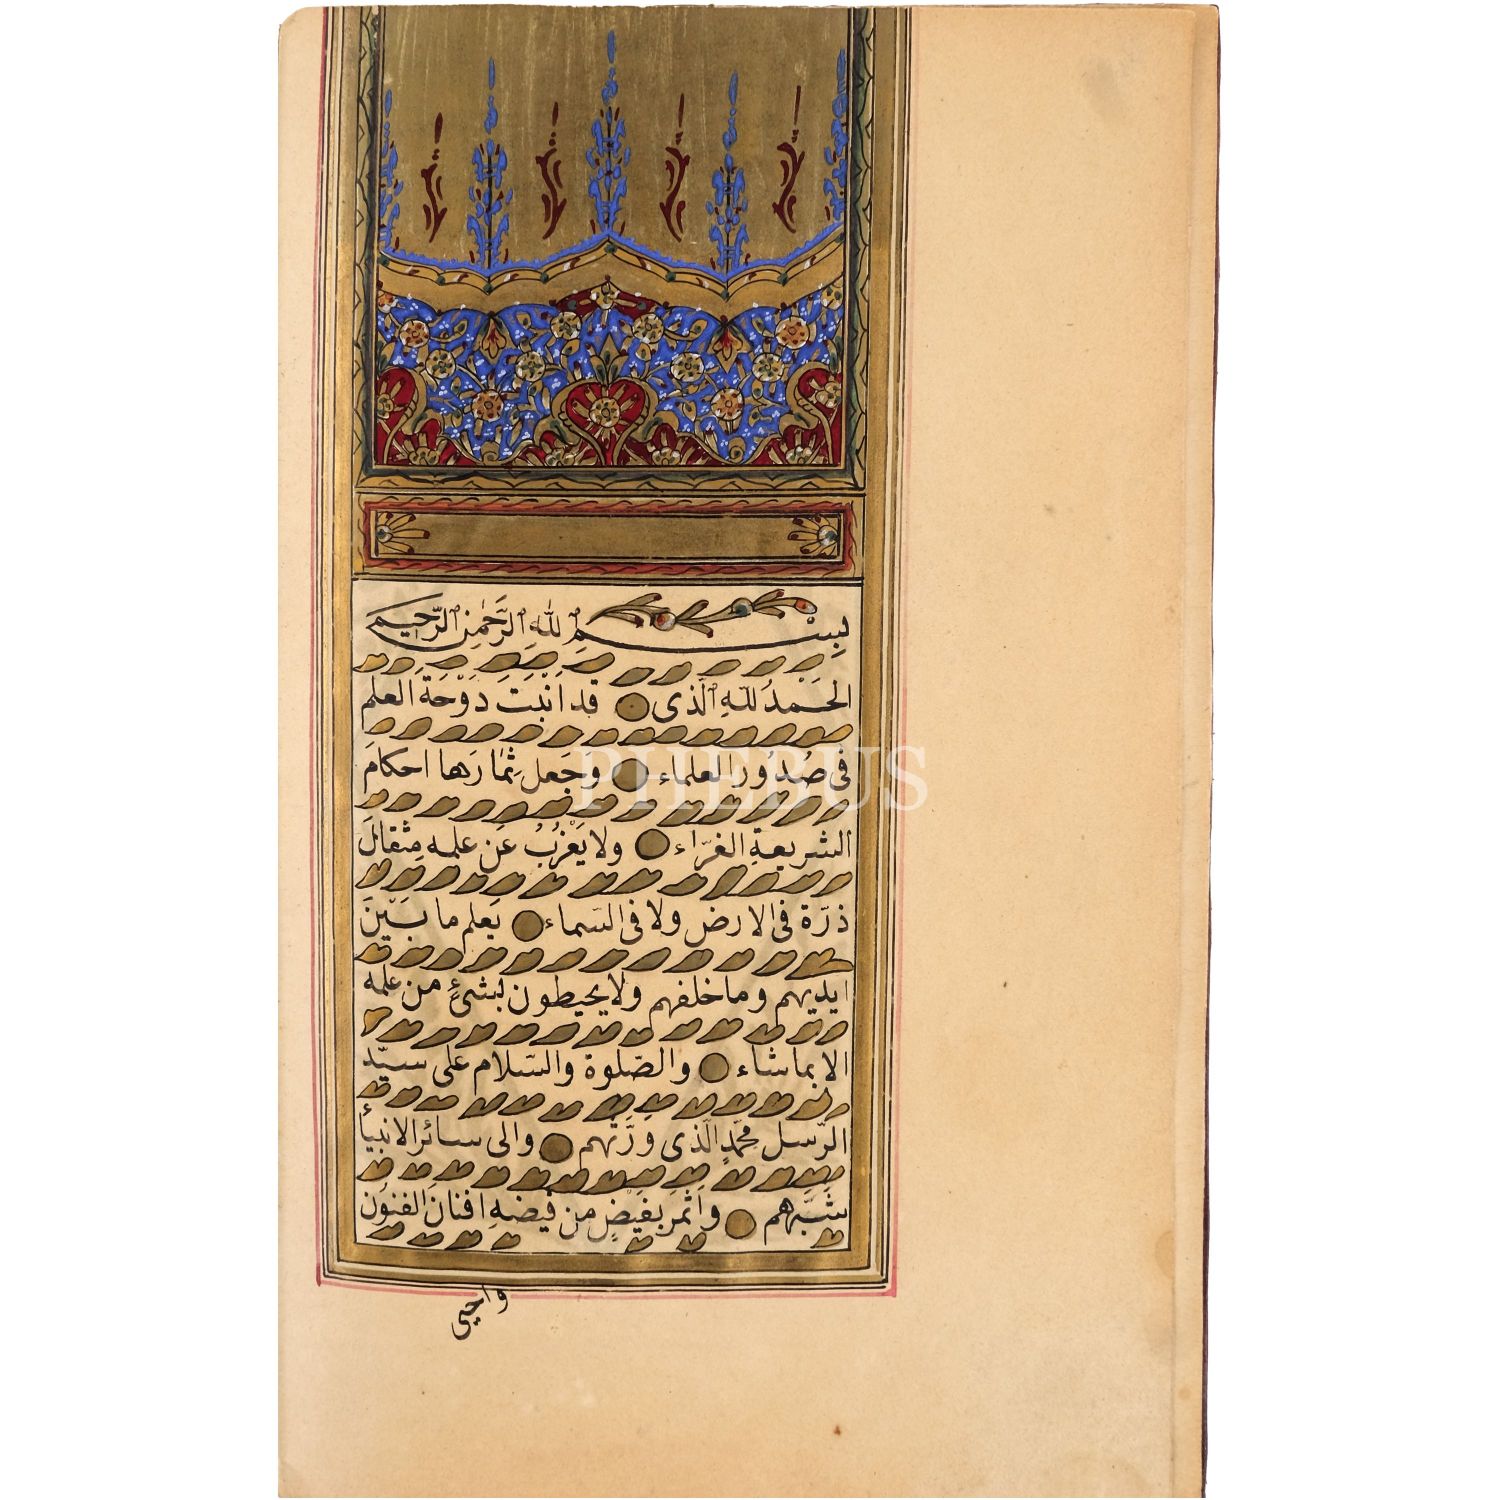 بِسْمِ ٱللّٰهِ ٱلرَّحْمٰنِ ٱلرَّحِيمِ
الحَمْدُ لله الَّذى قد اَنْبَتَ دَوْحَةَ العلم
فى صُدُور العلماء وَجَعل ثِمَارَها احكام
الشريعةِ الغرّاء ولا يَعْزُبُ عَن علمه مِثقالَ
ذرّة فى الارض ولا فى السّماء يَعلم ما بَيْنَ
ايديهم وما خلفهم ولا يحيطون بشئٍ من علمه
الا بماشاء والصّلوة والسّلام على سيّد
الرّسل محمّدٍ الّذى وَرَّثهم والى سائر الانبيأ
شَبَّههم واَثمَر بفَيضٍ من فَيضهِ افنانَ الفنون
واحيى
PHEBUS